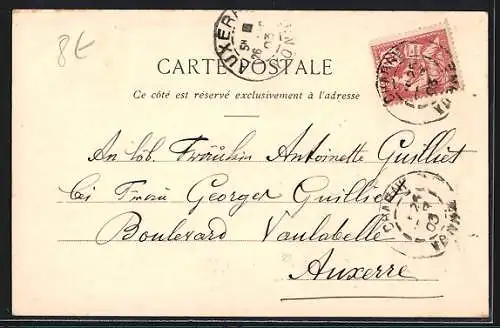 8€
AUXERRE
CARTE POSTALE
Ce côté est réservé exclusivement à l'adresse
An löb. Fräulein Antoinette Guilliet
bei Georges Guilliet
Boulevard Vaulabelle
Auxerre